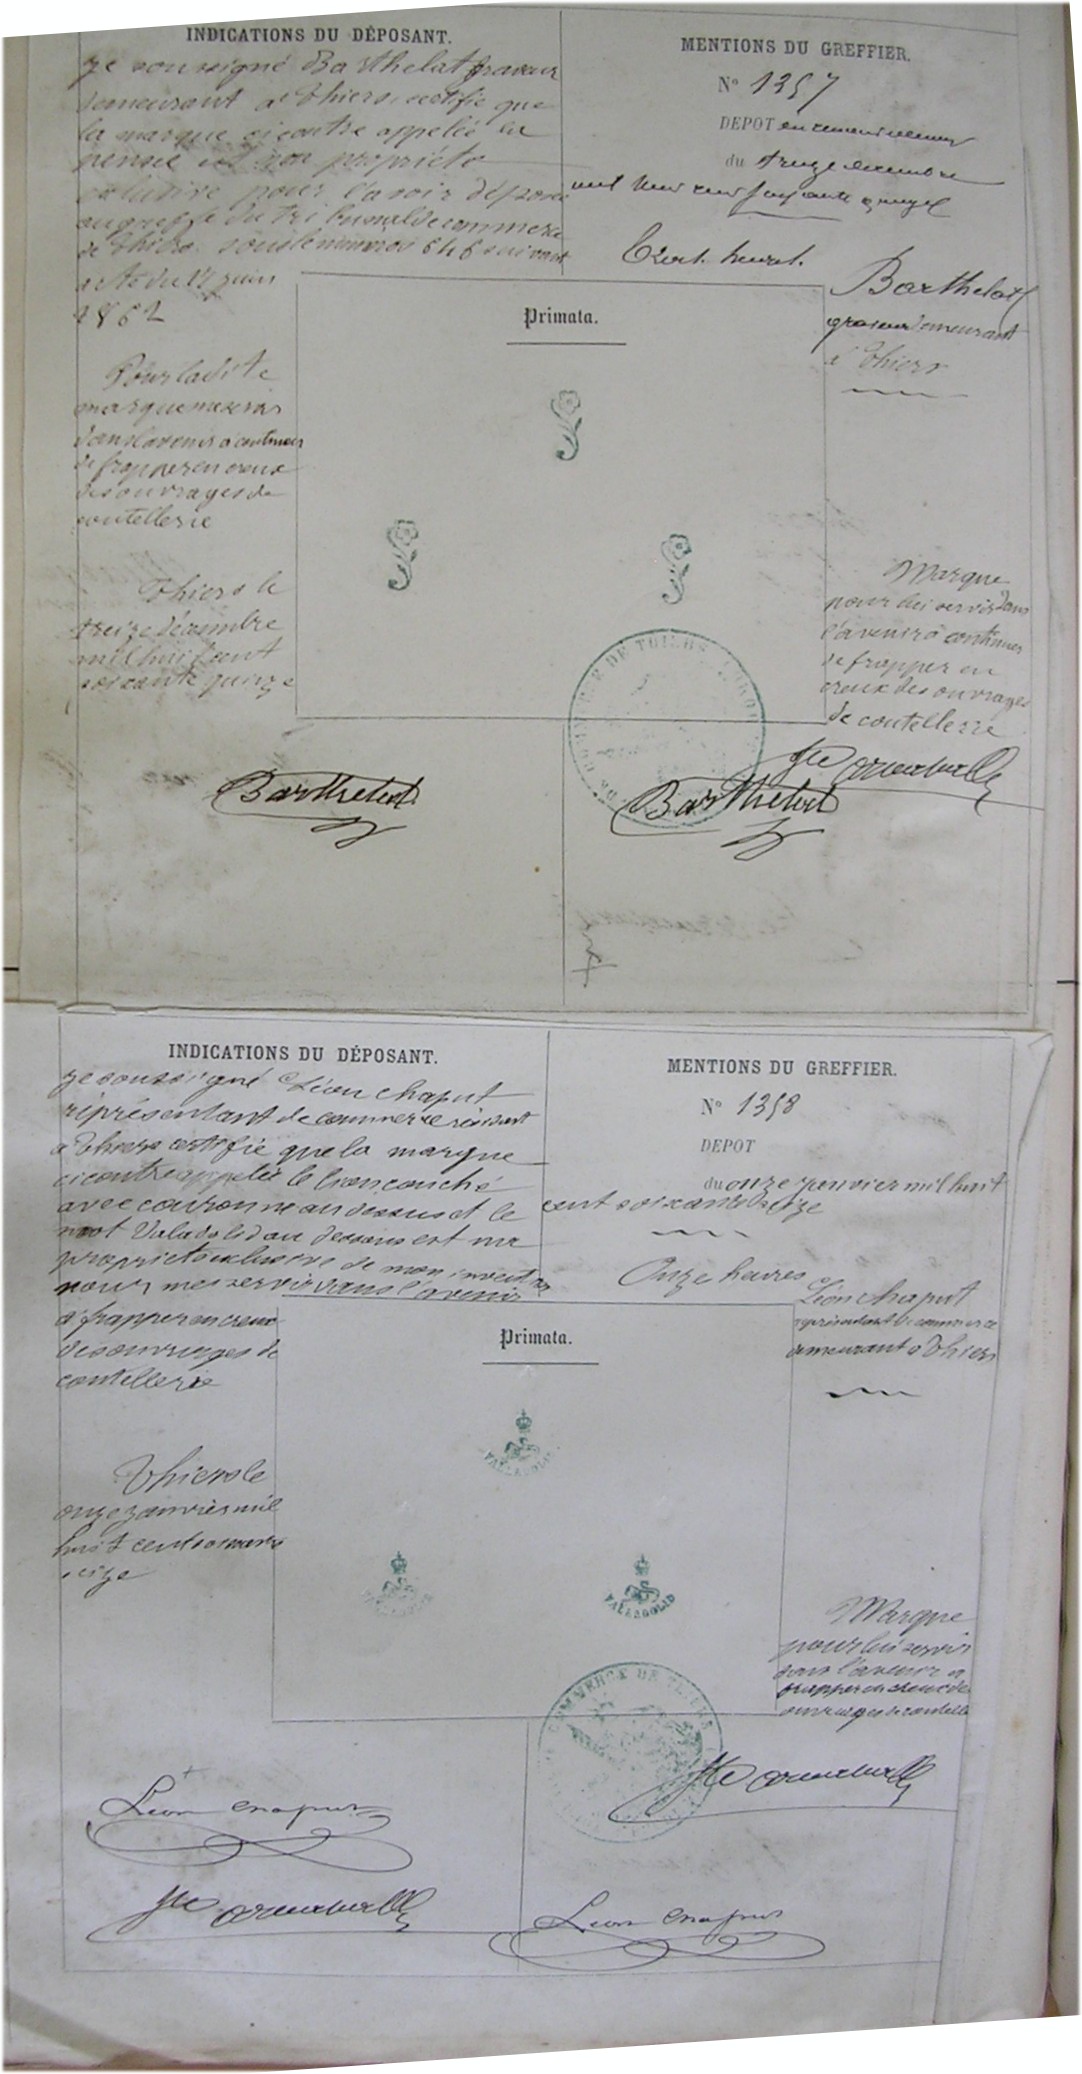 INDICATIONS DU DÉPOSANT.
Je soussigné Barthelat graveur
demeurant à Thiers, certifie que
la marque ci contre appelée la
pensée est ma propriété
exclusive pour l'avoir déposée
au greffe du tribunal de commerce
de Thiers sous le numéro 646 suivant
acte du 17 juin
1862
Pour ladite
marque me servir
dans l'avenir à continuer
de frapper en creux
des ouvrages de
coutellerie
Thiers le
treize décembre
mil huit cent
soixante quinze
Barthelat
MENTIONS DU GREFFIER.
N° 1357
DEPOT en renouvellement
du treize décembre
mil huit cent soixante quinze
heures.
Barthelat
graveur demeurant
à Thiers
Primata.
Marque
pour lui servir dans
l'avenir à continuer
de frapper en
creux des ouvrages
de coutellerie
Barthelat
INDICATIONS DU DÉPOSANT.
Je soussigné Léon Chaput
représentant de commerce résidant
à Thiers certifie que la marque
ci contre appelée le lion couché
avec couronne au dessus et le
mot Valladolid au dessous est ma
propriété exclusive de mon invention
pour me servir dans l'avenir
à frapper en creux
des ouvrages de
coutellerie
Thiers le
onze janvier mil
huit cent soixante
seize
Léon Chaput
MENTIONS DU GREFFIER.
N° 1358
DEPOT
du onze janvier mil huit
cent soixante seize
Onze heures
Léon Chaput
représentant de commerce
demeurant à Thiers
Primata.
VALLADOLID
VALLADOLID
VALLADOLID
Marque
pour lui servir
dans l'avenir à
frapper en creux des
ouvrages de coutellerie
COMMERCE DE THIERS
Léon Chaput